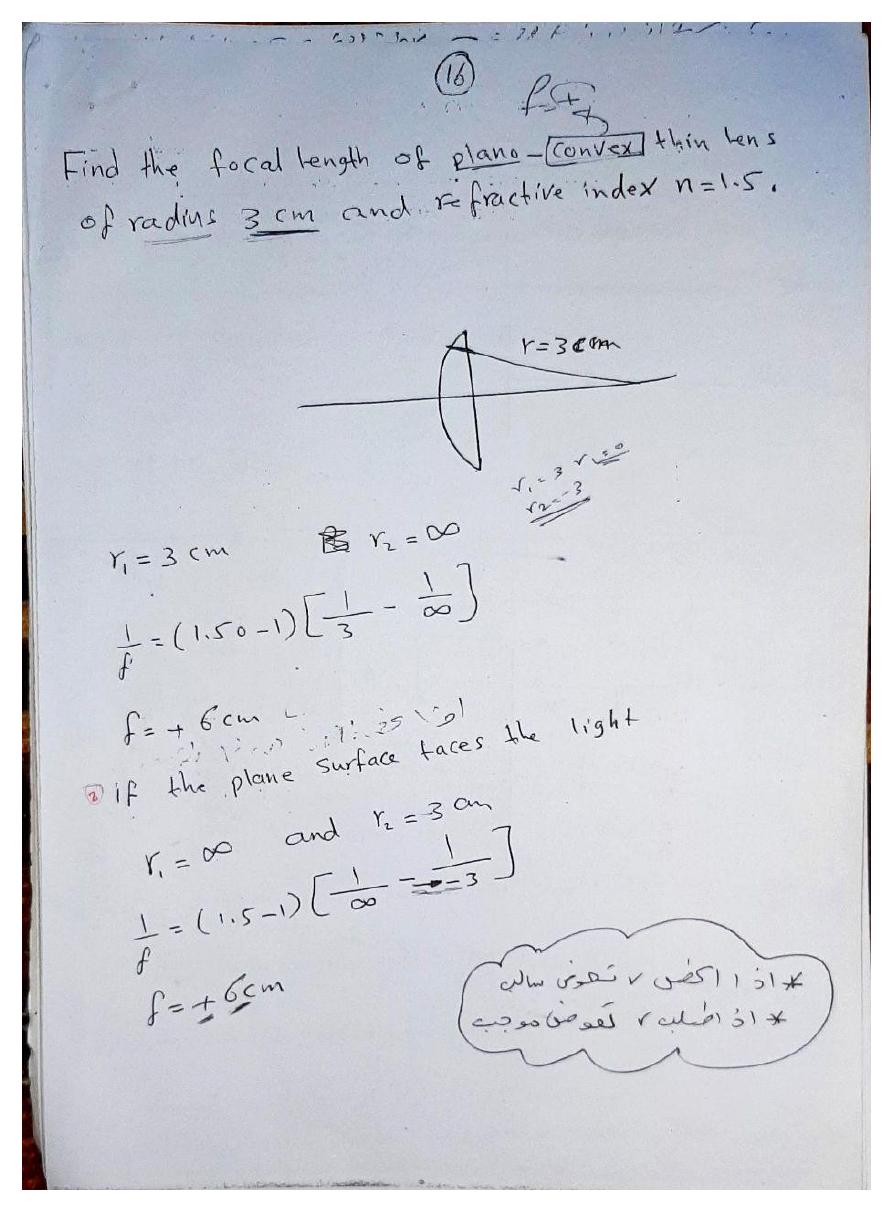 16
f = +
Find the focal length of plano-convex thin lens
of radius 3 cm and refractive index n=1.5.
r=3 cm
r₁=3
r₂=-3
r₁ = 3 cm r₂ = ∞
1/f = (1.50-1)[1/3 - 1/∞]
f = + 6 cm
2 if the plane surface faces the light
r₁ = ∞ and r₂ = 3 cm
1/f = (1.5-1)[1/∞ - 1/-3]
f = + 6cm
* اذا r تعوض سالب
* اذا r تعوض موجب